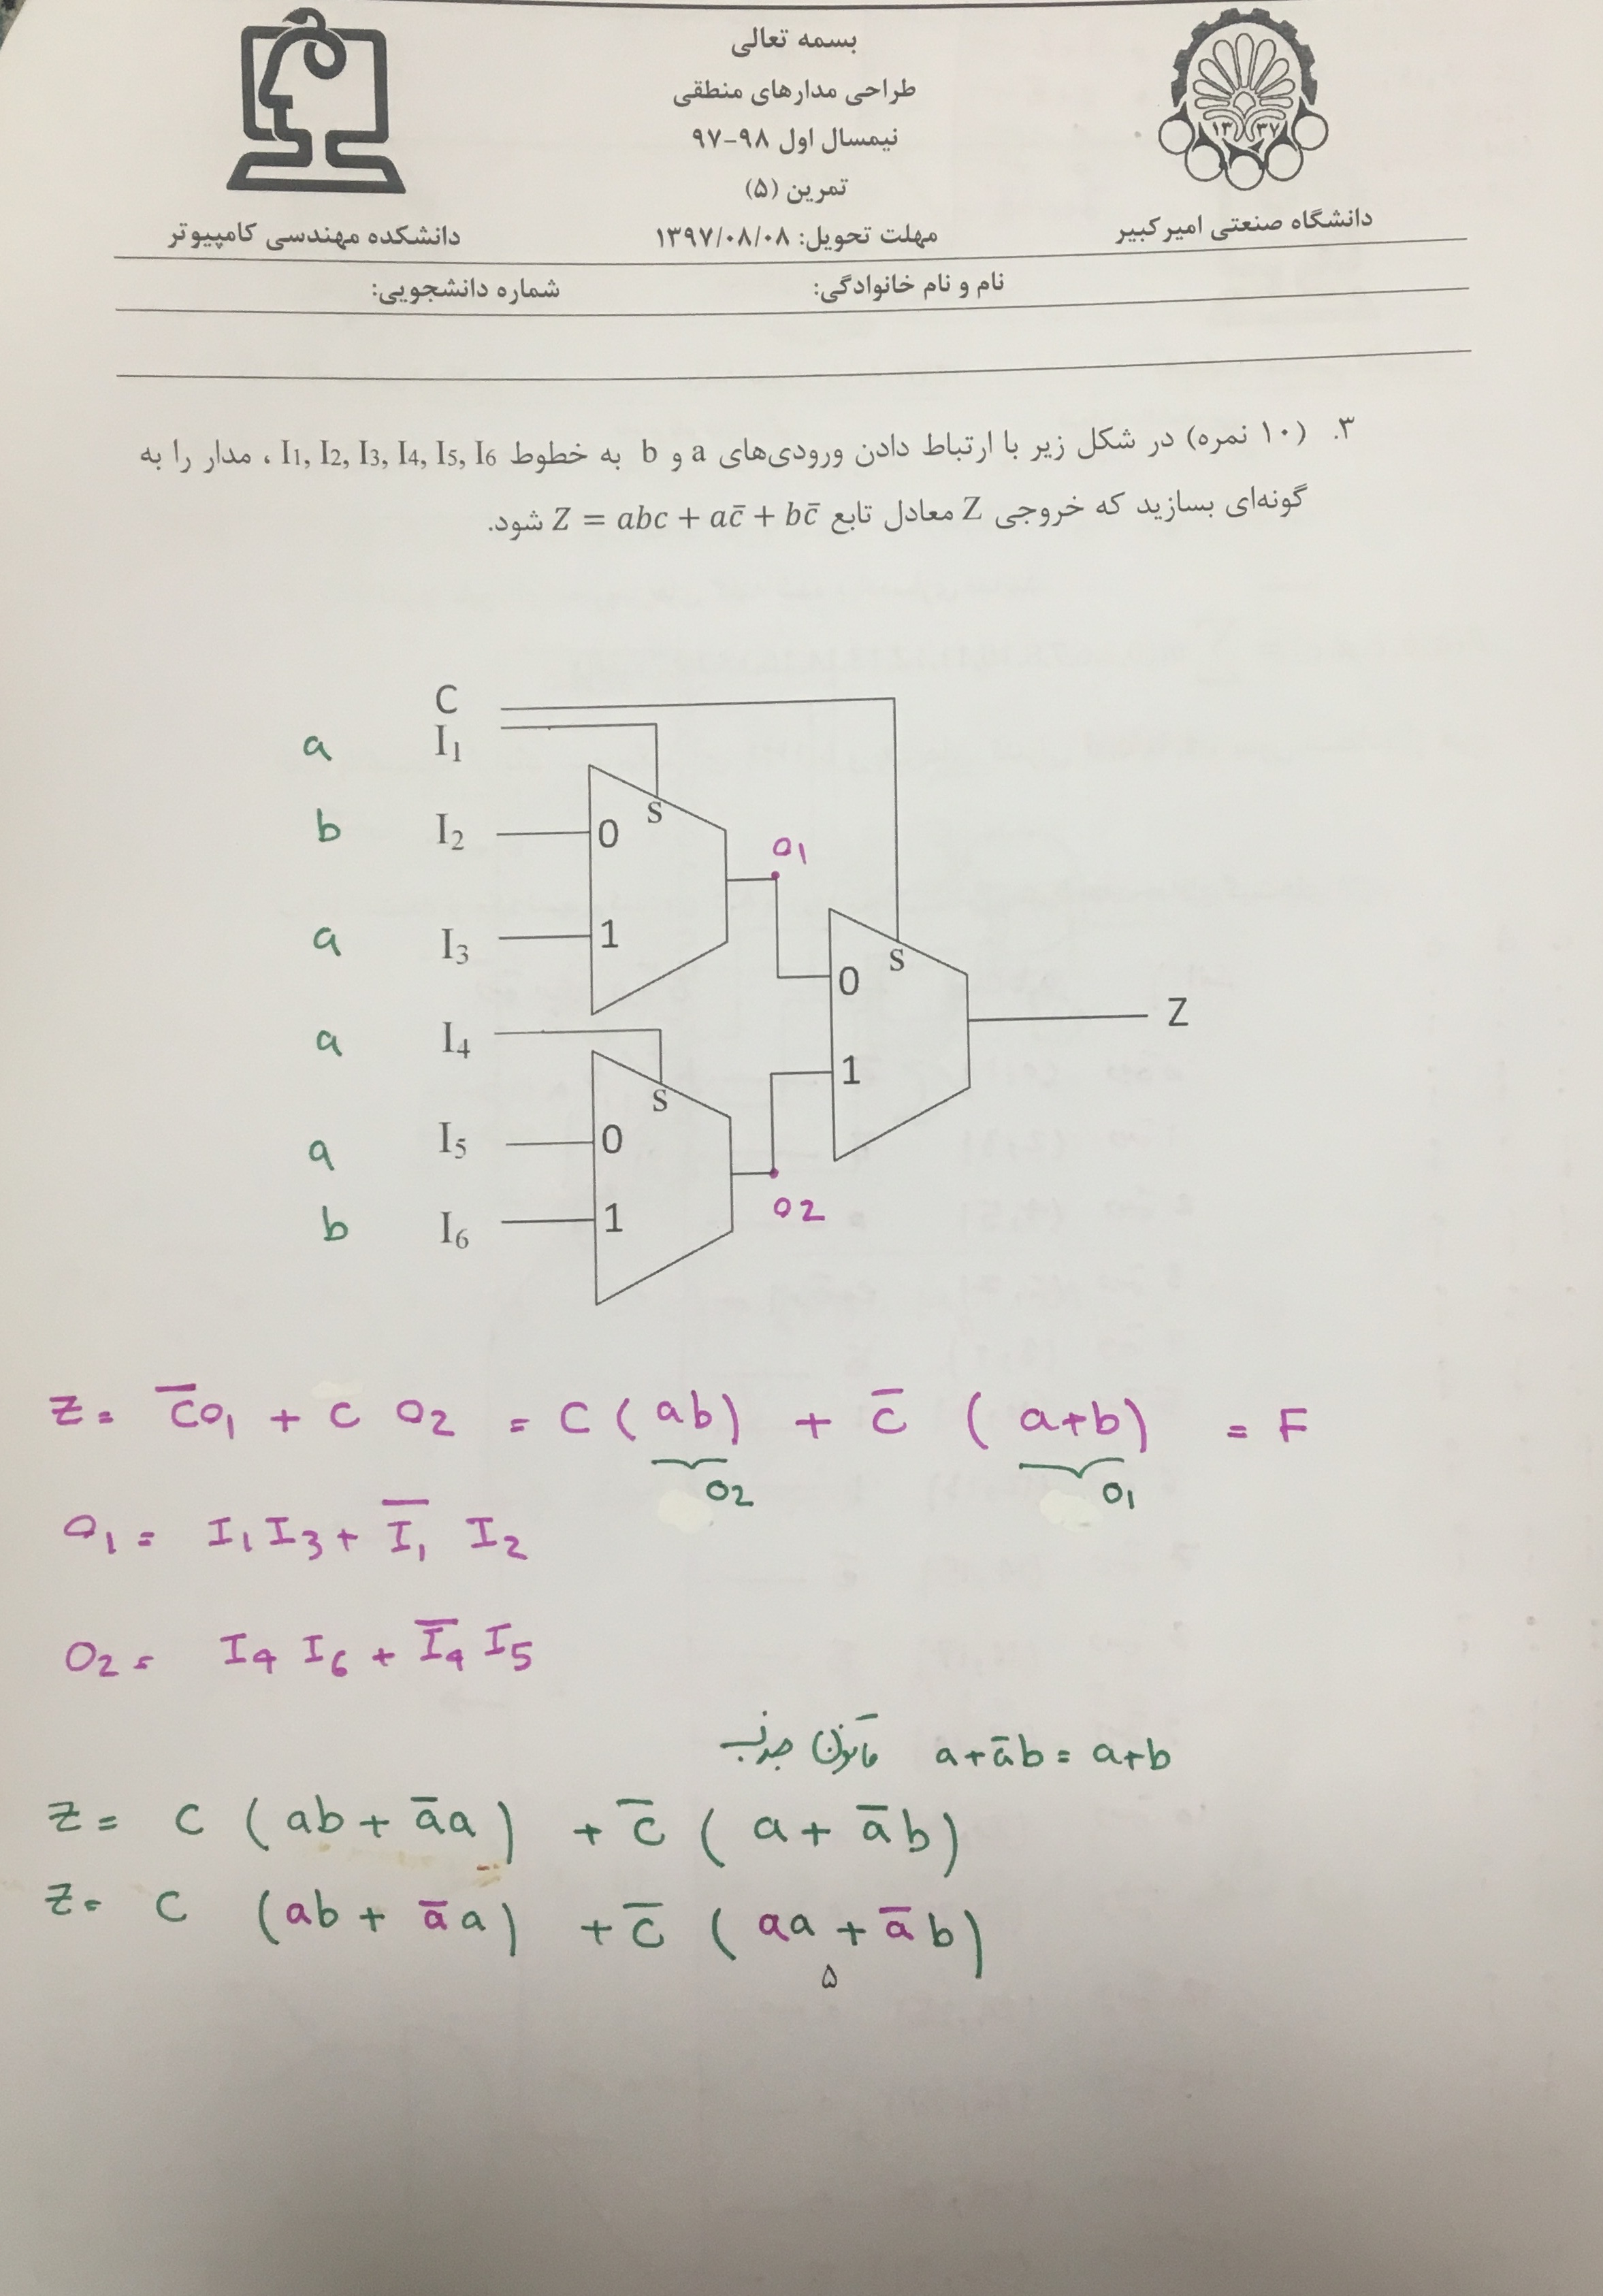 بسمه تعالی
طراحی مدارهای منطقی
نیمسال اول ۹۸-۹۷
تمرین (۵)
۱۳ ۳۷
دانشگاه صنعتی امیرکبیر
مهلت تحویل: ۱۳۹۷/۰۸/۰۸
دانشکده مهندسی کامپیوتر
نام و نام خانوادگی:
شماره دانشجویی:
۳. (۱۰ نمره) در شکل زیر با ارتباط دادن ورودی‌های a و b به خطوط I1, I2, I3, I4, I5, I6 ، مدار را به
گونه‌ای بسازید که خروجی Z معادل تابع Z = abc + ac̄ + bc̄ شود.
C
a I1
S
b I2 0
O1
a I3 1
S
0
a I4
Z
1
S
a I5 0
O2
b I6 1
Z = c̄O1 + C O2 = C (ab) + c̄ (a+b) = F
O2 O1
O1 = I1 I3 + Ī1 I2
O2 = I4 I6 + Ī4 I5
قانون جذب a + āb = a+b
Z = C (ab + āa) + c̄ (a + āb)
Z = C (ab + āa) + c̄ (aa + āb)
۵